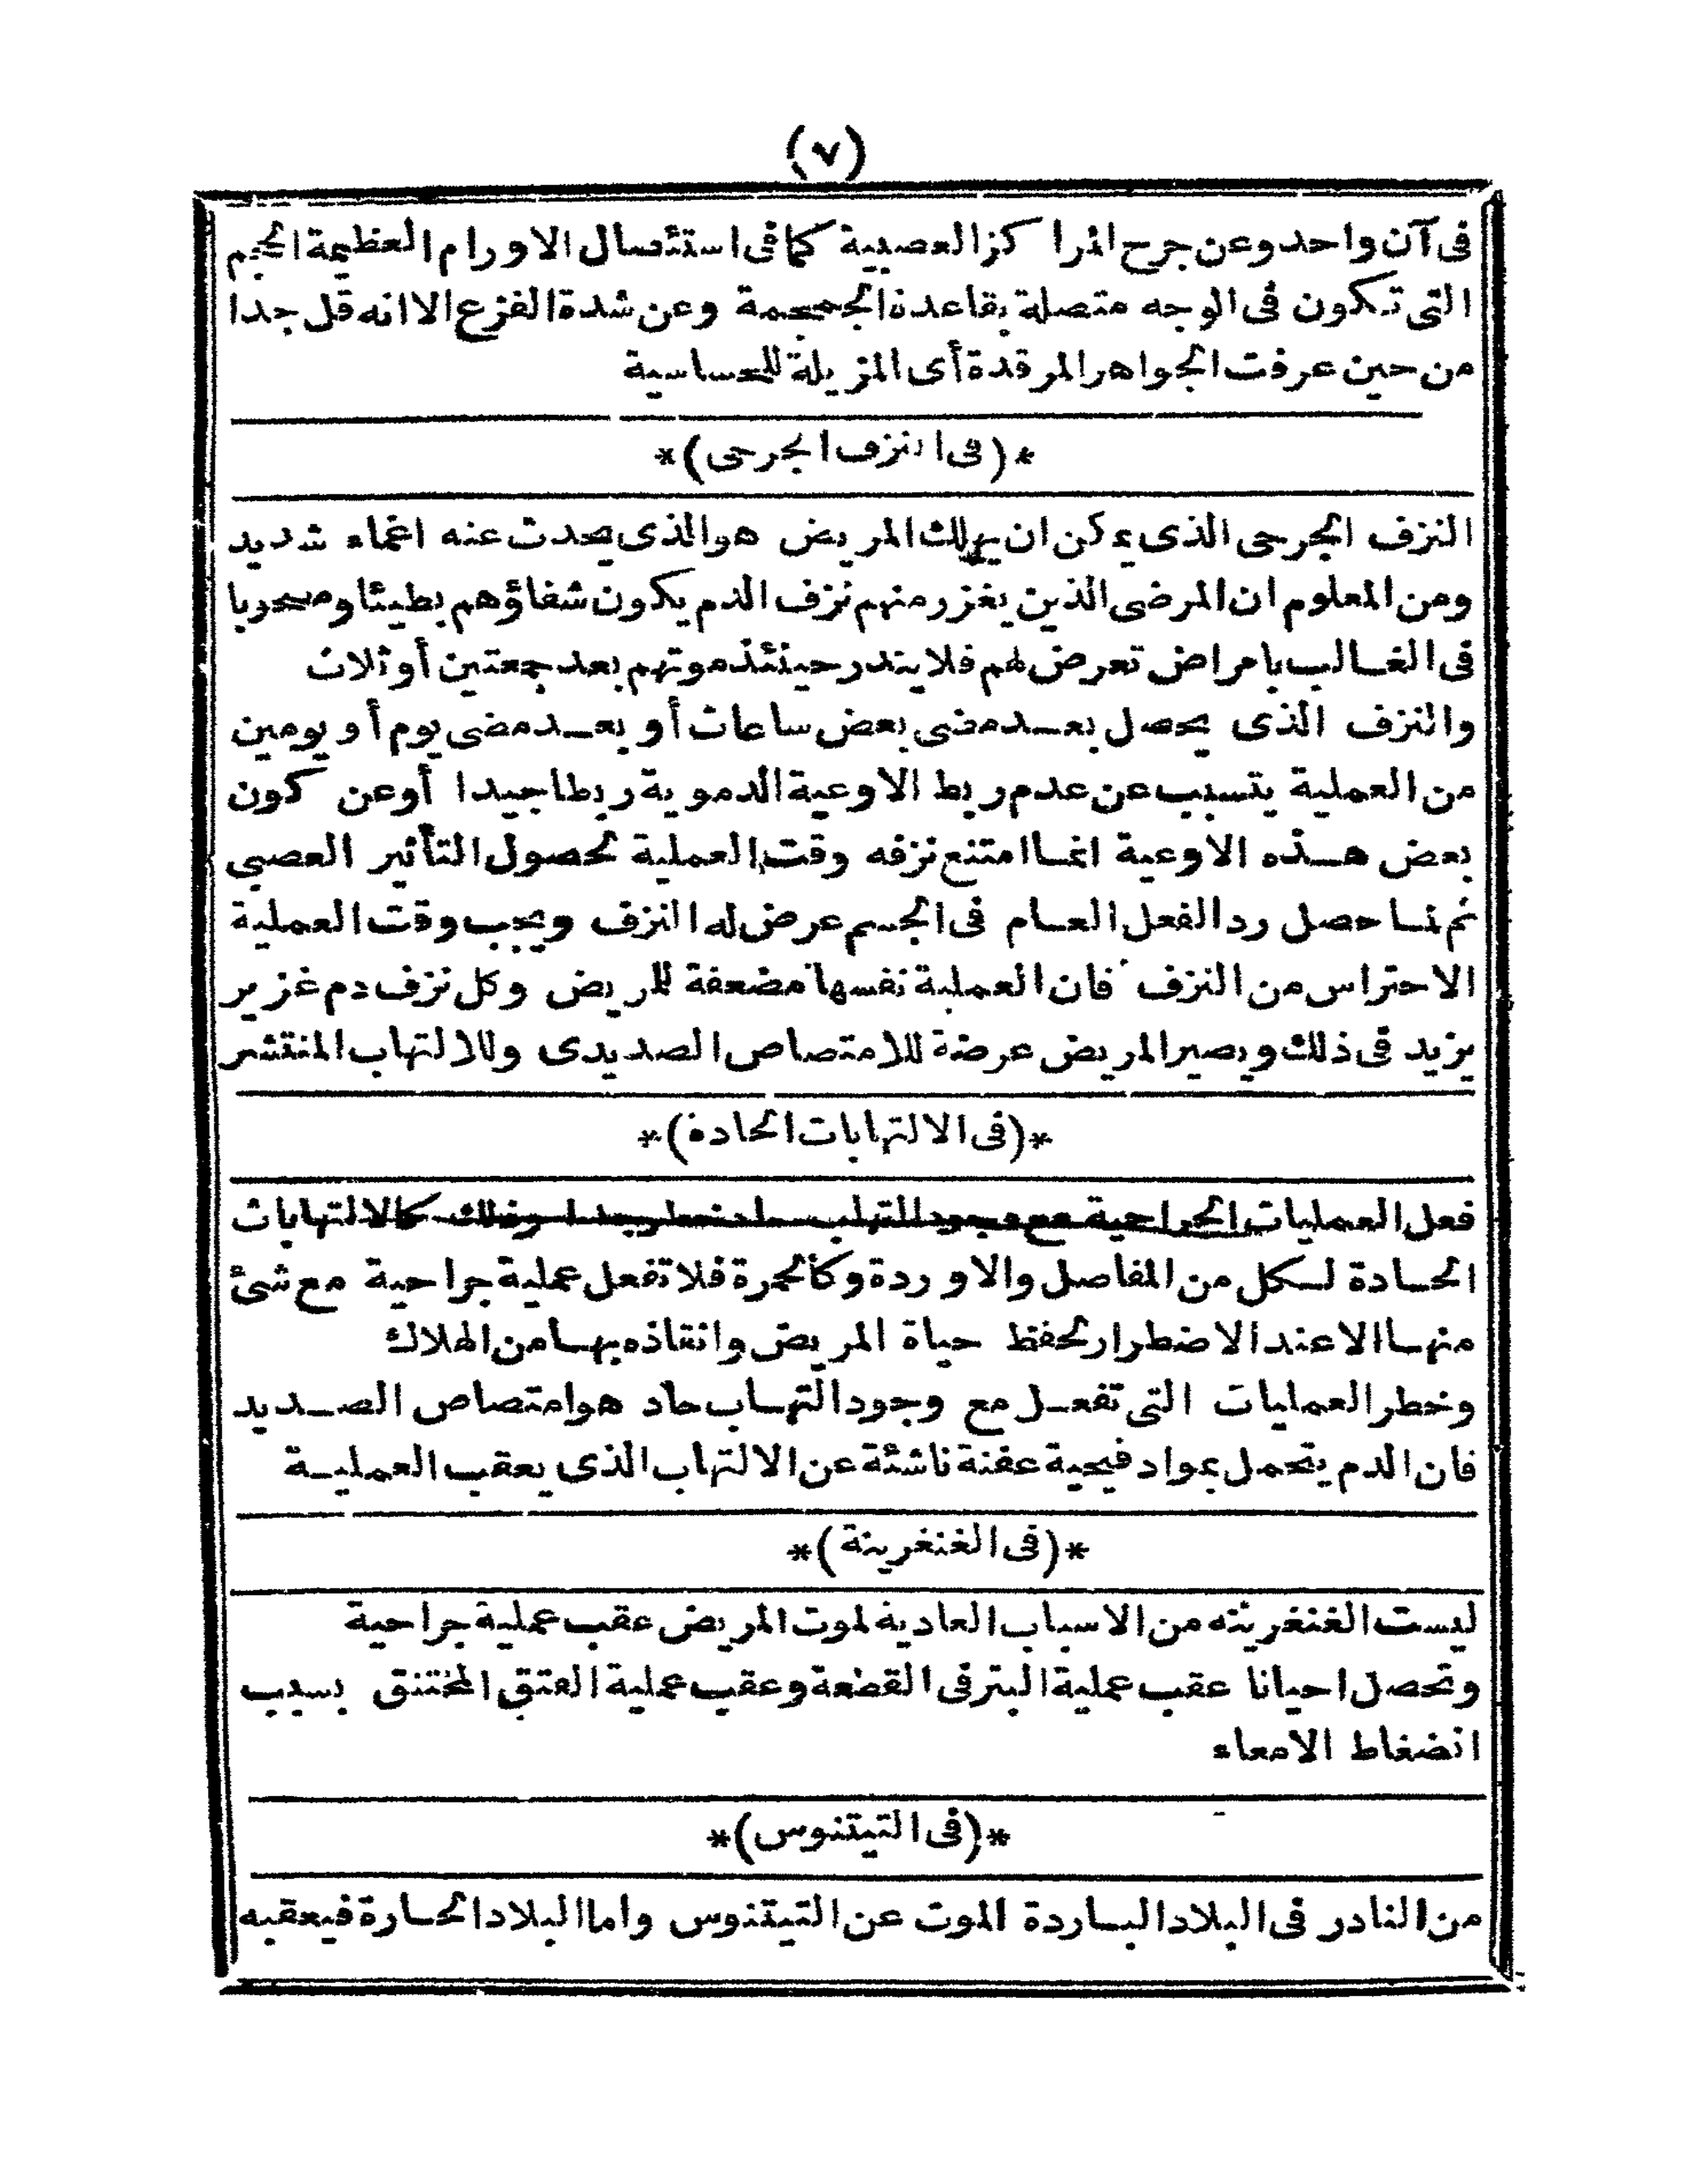 (٧)
فى آن واحد وعن جرح المراكز العصبية كما فى استئصال الاورام العظيمة الحجم
التى تكون فى الوجه متصلة بقاعدة الجمجمة وعن شدة الفزع الا انه قل جدا
من حين عرفت الجواهر المرقدة أى المزيلة للحساسية
*(فى النزف الجرحى)*
النزف الجرحى الذى يمكن ان يهلك المريض هو الذى يحدث عنه اغماء شديد
ومن المعلوم ان المرضى الذين يغزر منهم نزف الدم يكون شفاؤهم بطيئا ومصحوبا
فى الغالب بامراض تعرض لهم فلا يندر حينئذ موتهم بعد جمعتين أو ثلاث
والنزف الذى يحصل بعد مضى بعض ساعات أو بعد مضى يوم أو يومين
من العملية يتسبب عن عدم ربط الاوعية الدموية ربطا جيدا أو عن كون
بعض هذه الاوعية انما امتنع نزفه وقت العملية لحصول التأثير العصبى
ثم لما حصل رد الفعل العام فى الجسم عرض له النزف ويجب وقت العملية
الاحتراس من النزف فان العملية نفسها مضعفة للمريض وكل نزف دم غزير
يزيد فى ذلك ويصير المريض عرضة للامتصاص الصديدى وللالتهاب المنتشر
*(فى الالتهابات الحادة)*
فعل العمليات الجراحية مع وجود التهاب حاد خطر جدا وذلك كالالتهابات
الحادة لكل من المفاصل والاوردة وكالحمرة فلا تفعل عملية جراحية مع شئ
منها الا عند الاضطرار لحفظ حياة المريض وانقاذه بها من الهلاك
وخطر العمليات التى تفعل مع وجود التهاب حاد هو امتصاص الصديد
فان الدم يتحمل بمواد قيحية عفنة ناشئة عن الالتهاب الذى يعقب العملية
*(فى الغنغرينة)*
ليست الغنغرينه من الاسباب العادية لموت المريض عقب عملية جراحية
وتحصل احيانا عقب عملية البتر فى القطعة وعقب عملية الفتق المختنق بسبب
انضغاط الامعاء
*(فى التيتنوس)*
من النادر فى البلاد الباردة الموت عن التيتنوس واما البلاد الحارة فيعقبه